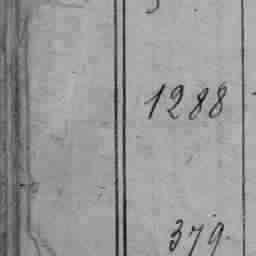 1288
379.